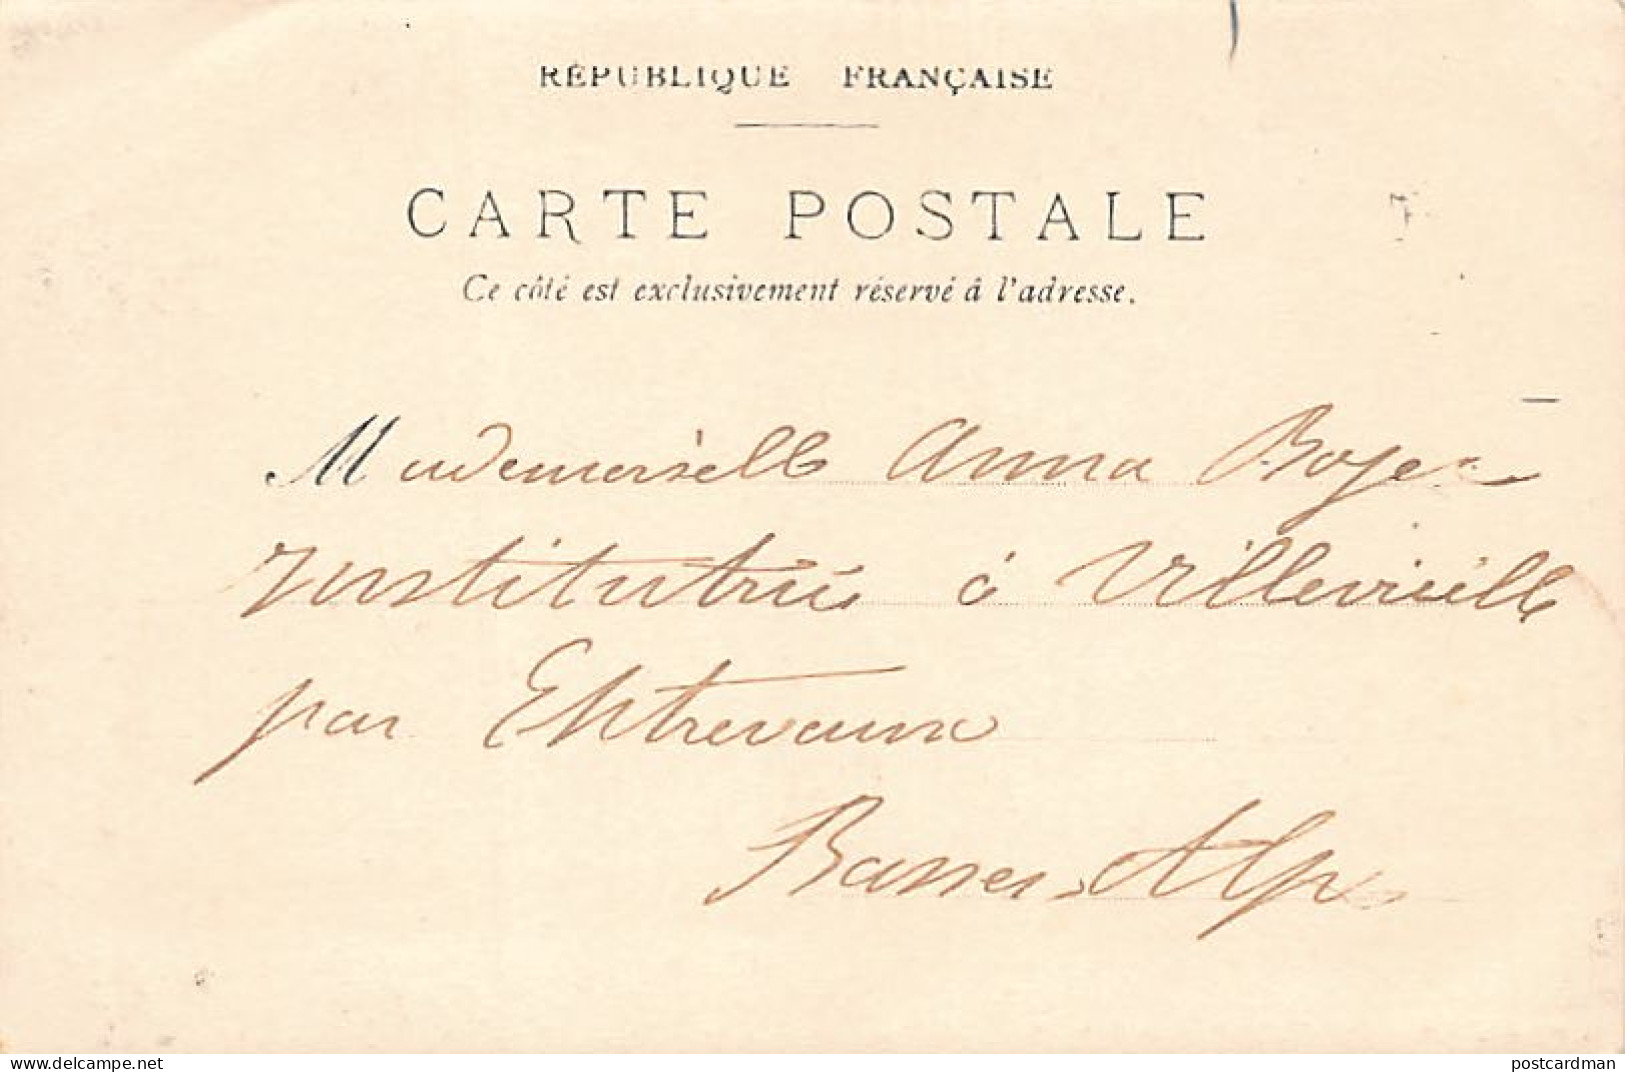 RÉPUBLIQUE FRANÇAISE
CARTE POSTALE
Ce côté est exclusivement réservé à l'adresse.
Mademoiselle Anna Boyer
Institutrice à Villevieille
par Entrevaux
Basses-Alpes
www.delcampe.net
postcardman